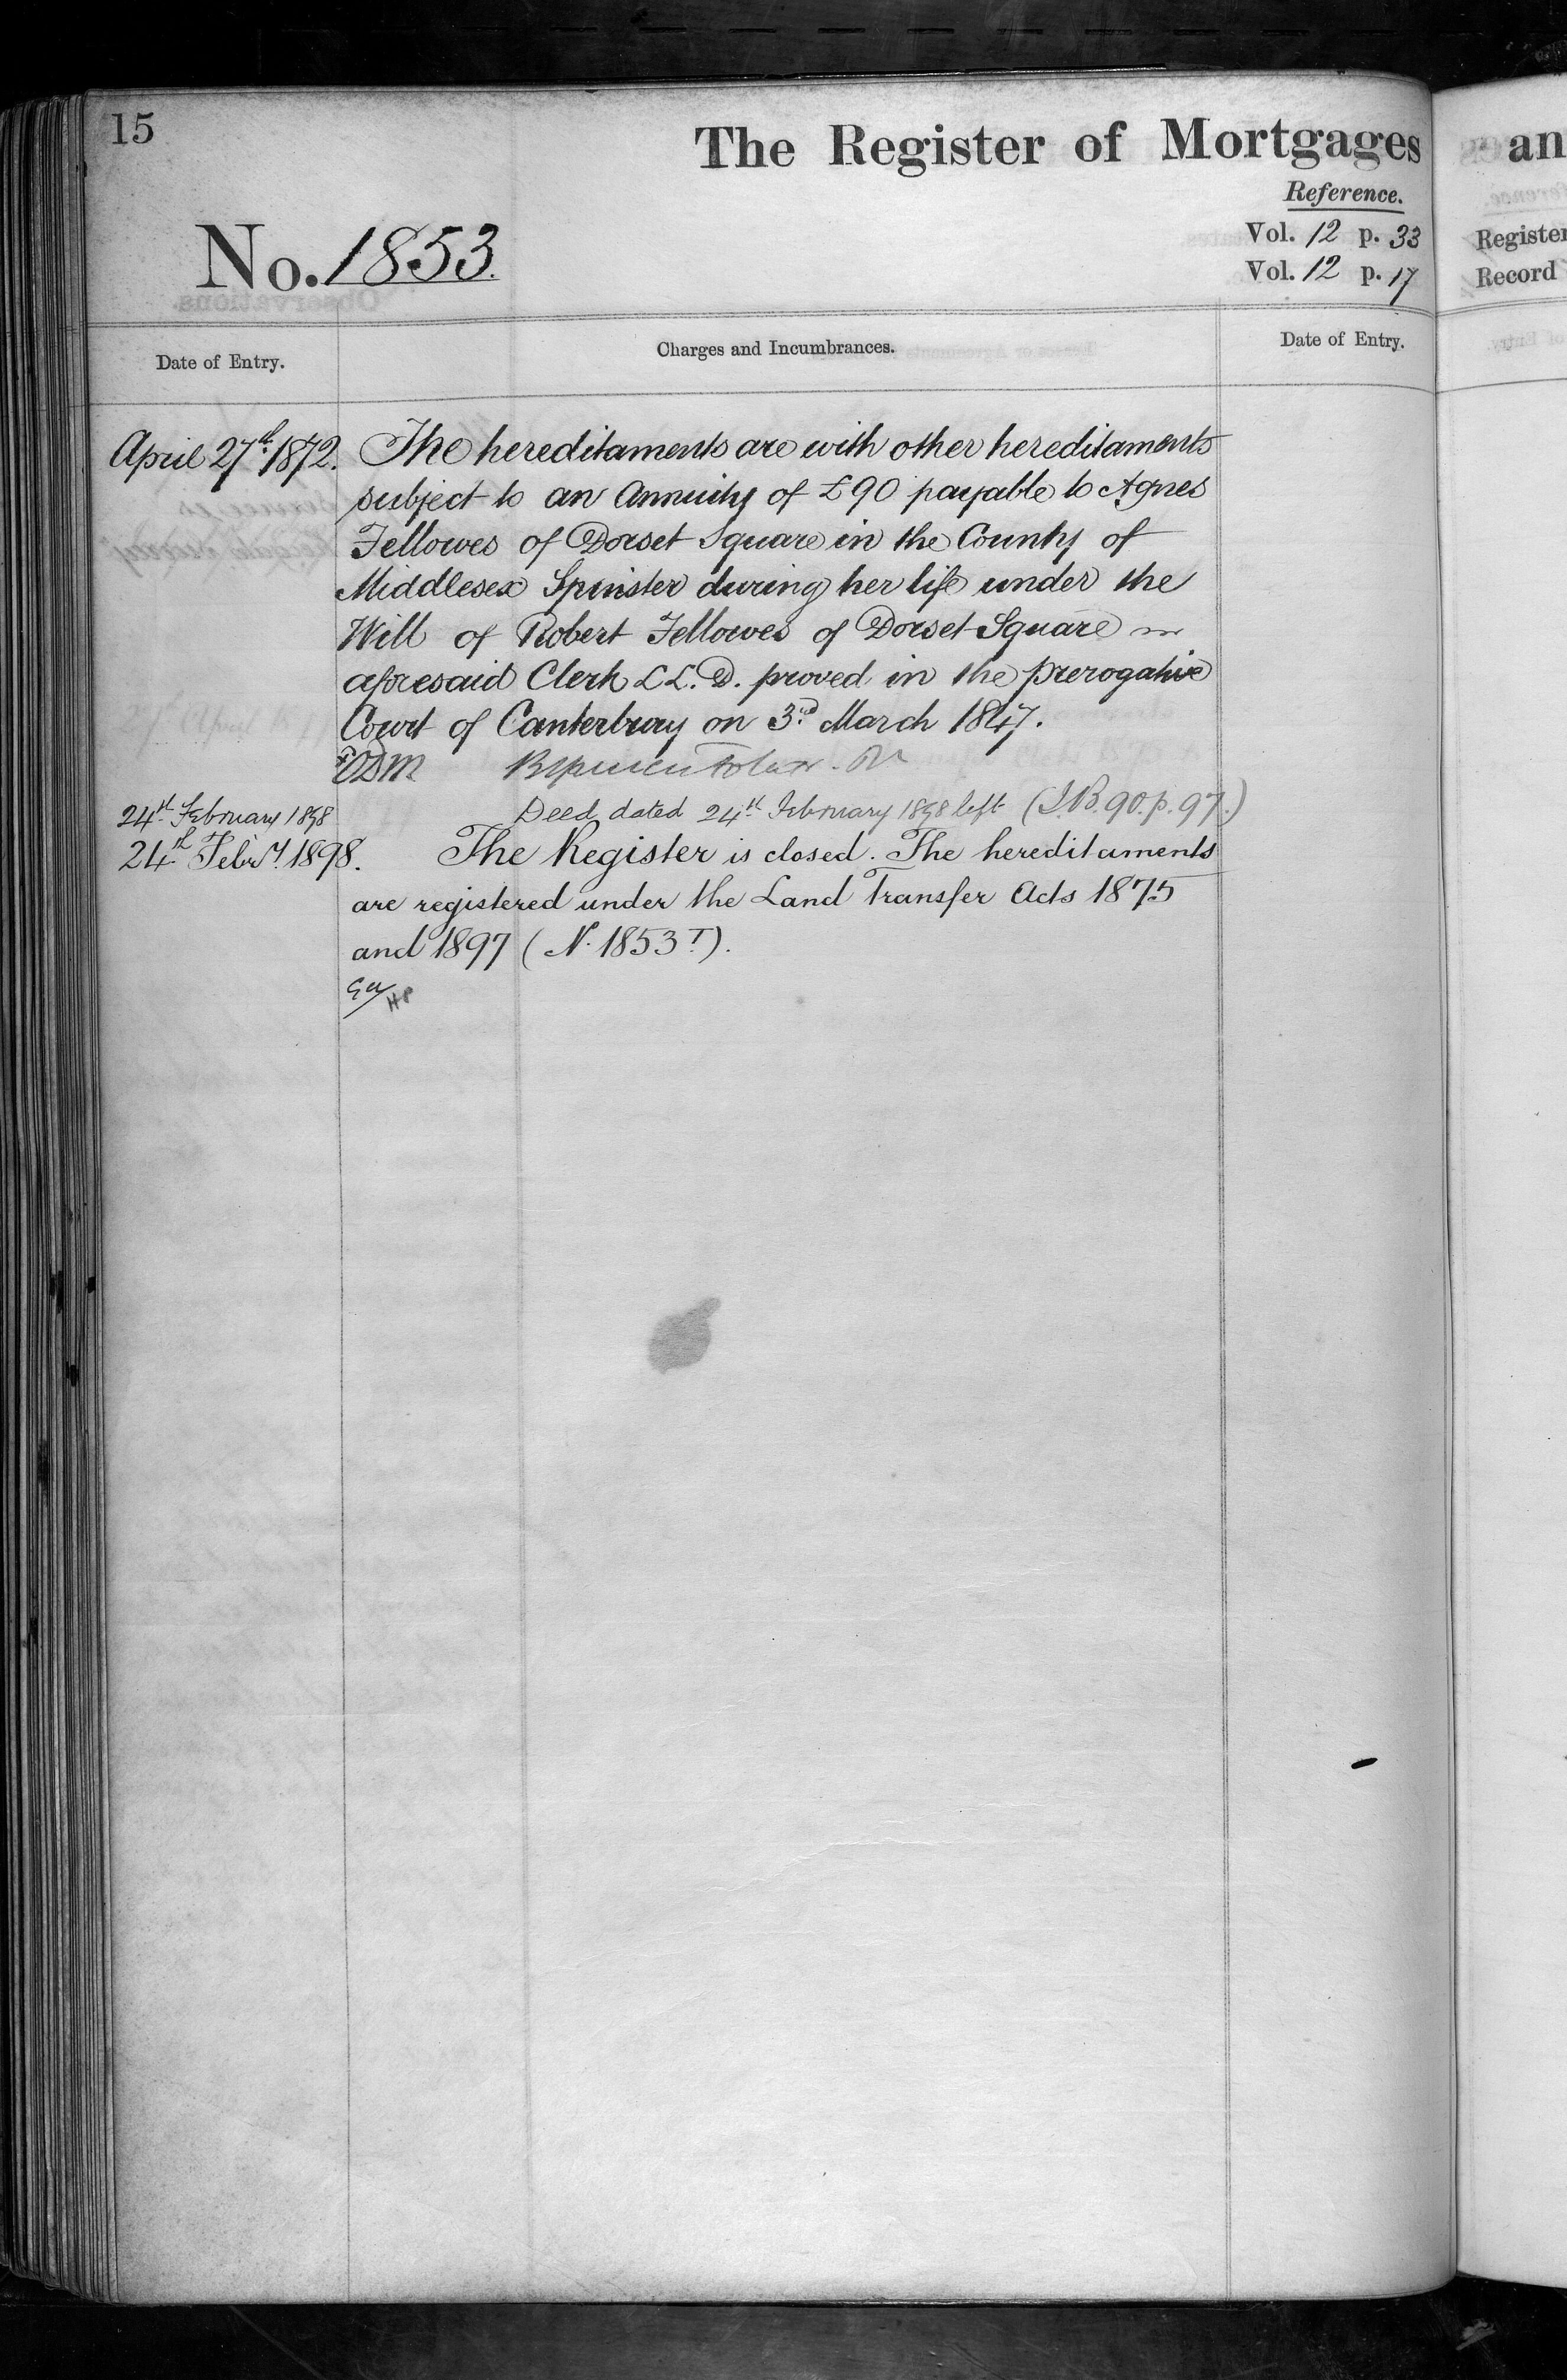 15
The Register of Mortgages an
Reference.
No. 1853.
Vol. 12 p. 33 Register
Vol. 12 p. 17 Record
Date of Entry.
Charges and Incumbrances.
Date of Entry.
April 27th 1872. The hereditaments are with other hereditaments
subject to an Annuity of £90 payable to Agnes
Fellowes of Dorset Square in the County of
Middlesex Spinster during her life under the
Will of Robert Fellowes of Dorset Square
aforesaid Clerk LL.D. proved in the Prerogative
Court of Canterbury on 3rd March 1847.
24th February 1898 Deed dated 24th February 1898 left (I.B. 90. p. 97.)
24th Febry 1898. The Register is closed. The hereditaments
are registered under the Land Transfer Acts 1875
and 1897 (N. 1853 T).
HP